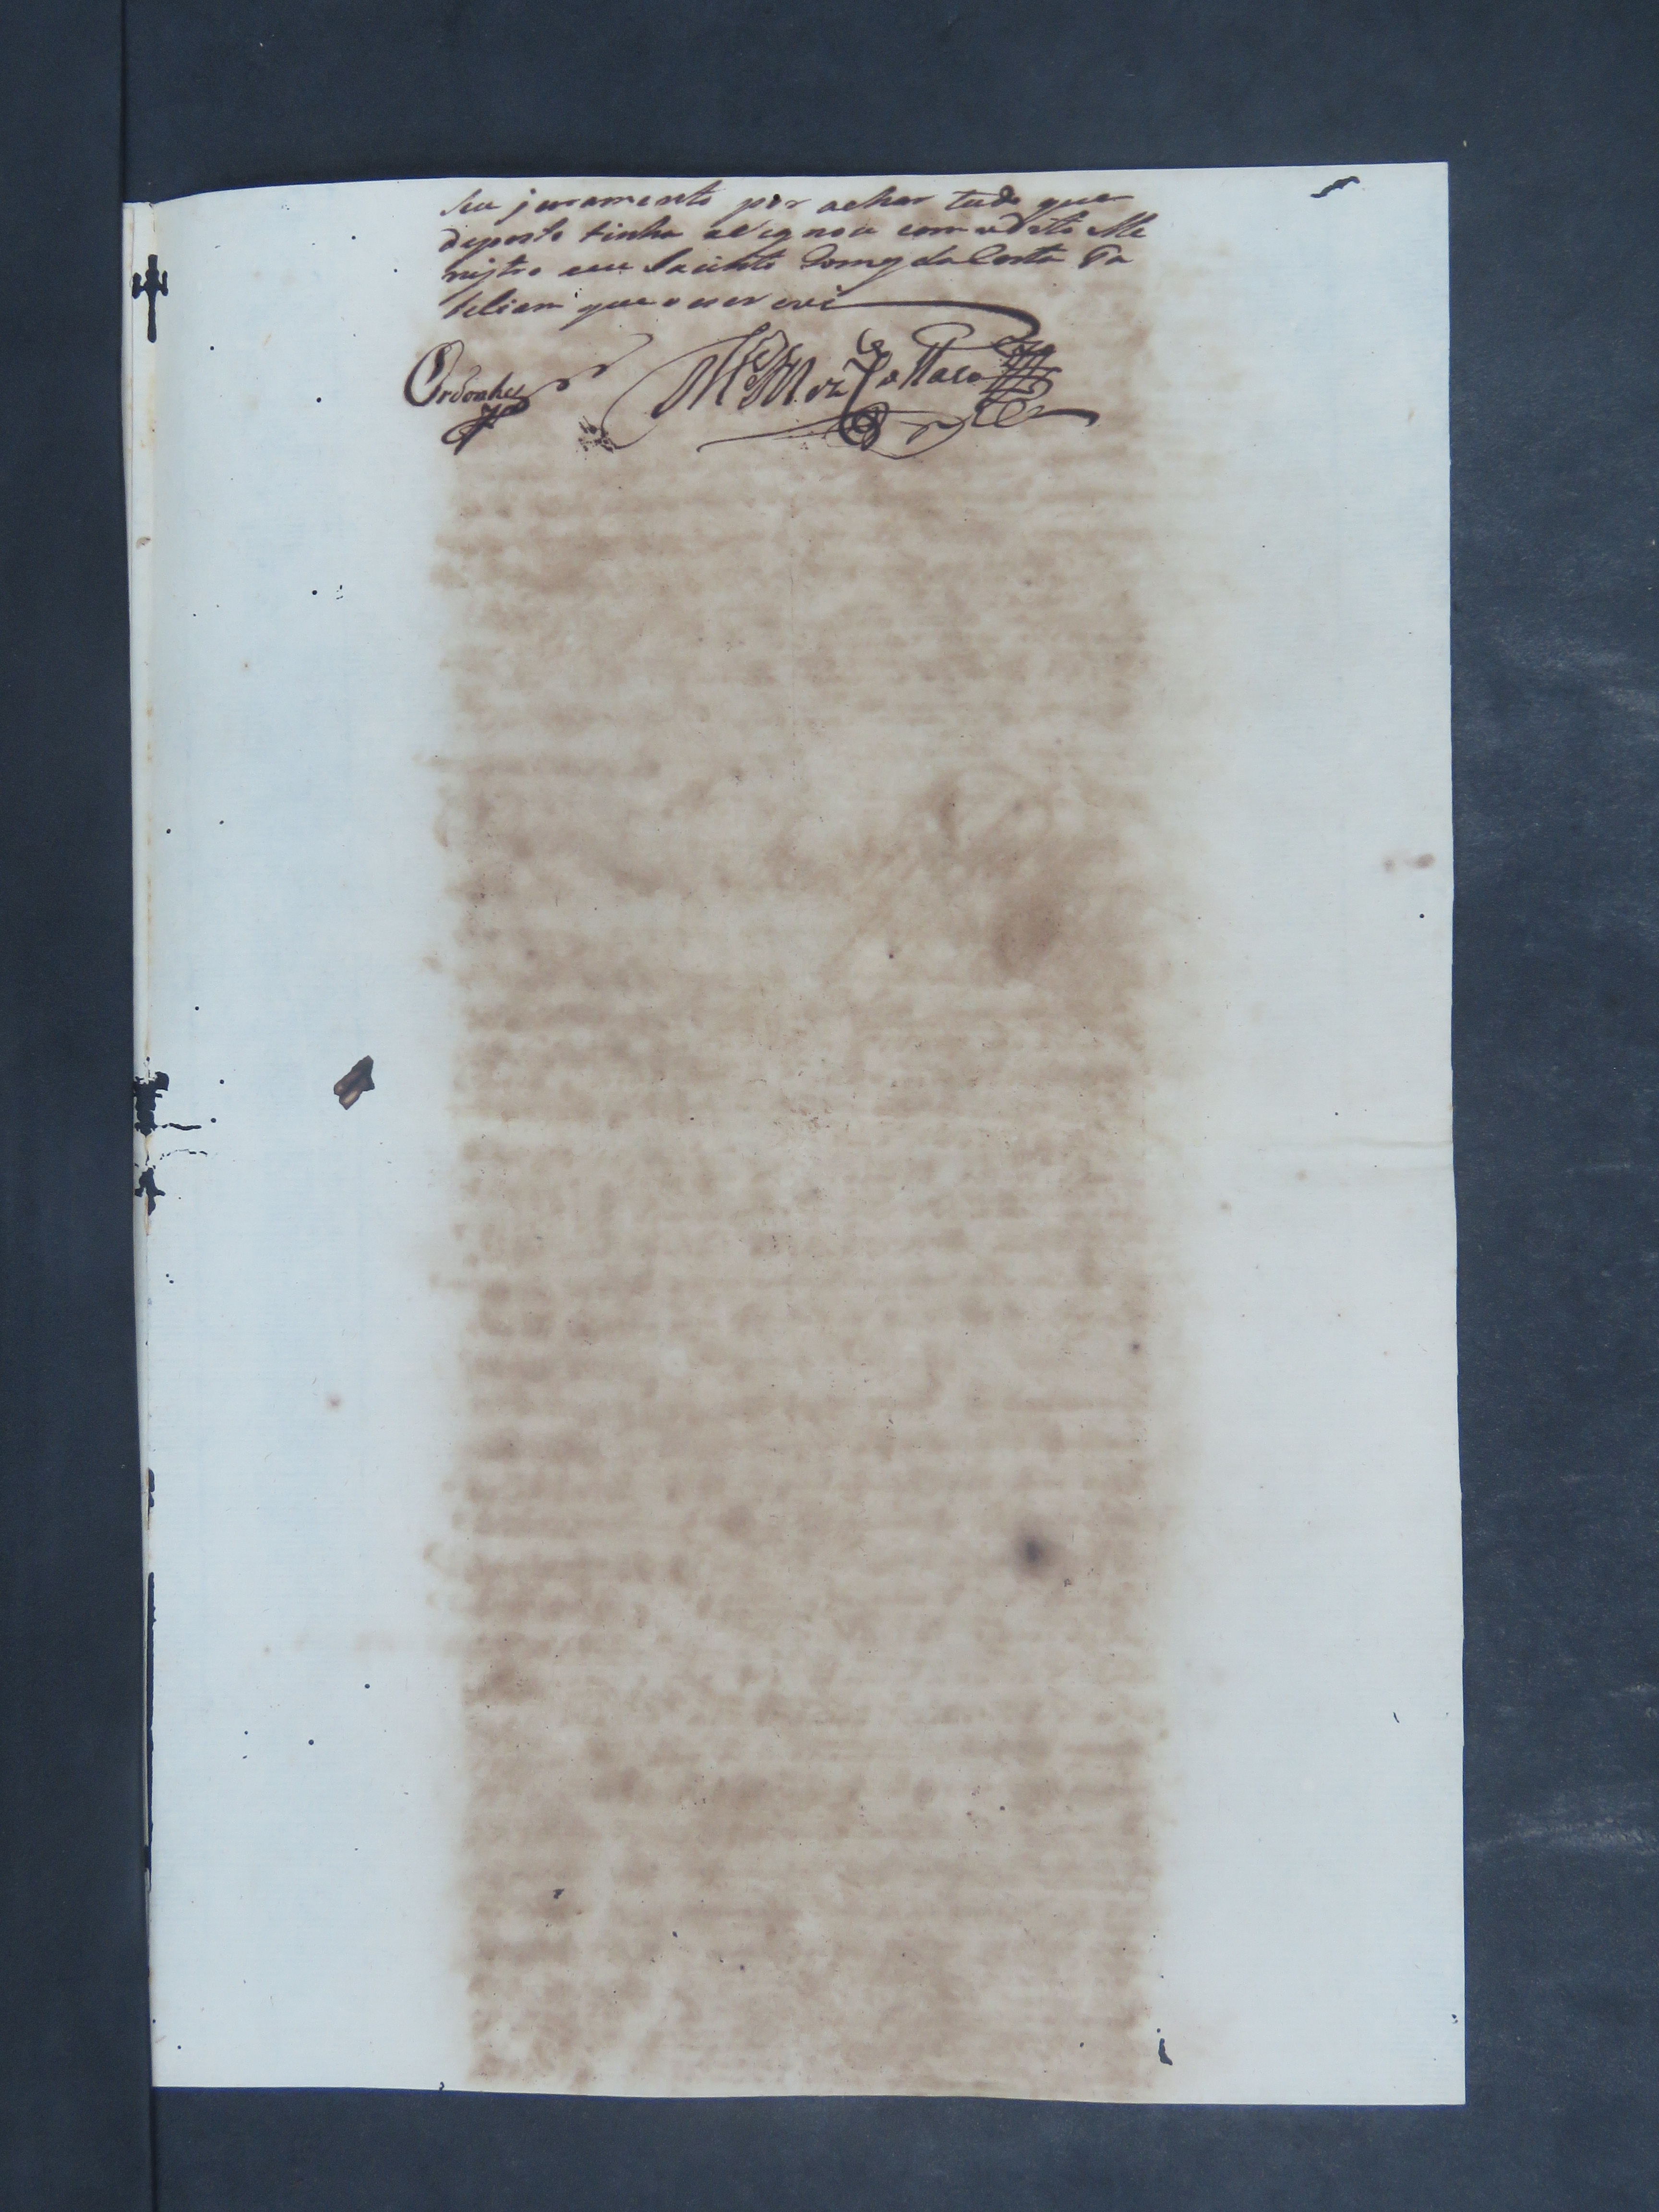 seu juramento por achar tudo que
deposto tinha asignou com o dito Me
nistro eu Jacinto Gomes da Costa Ta
beliam que o escrevi
Ordonhes